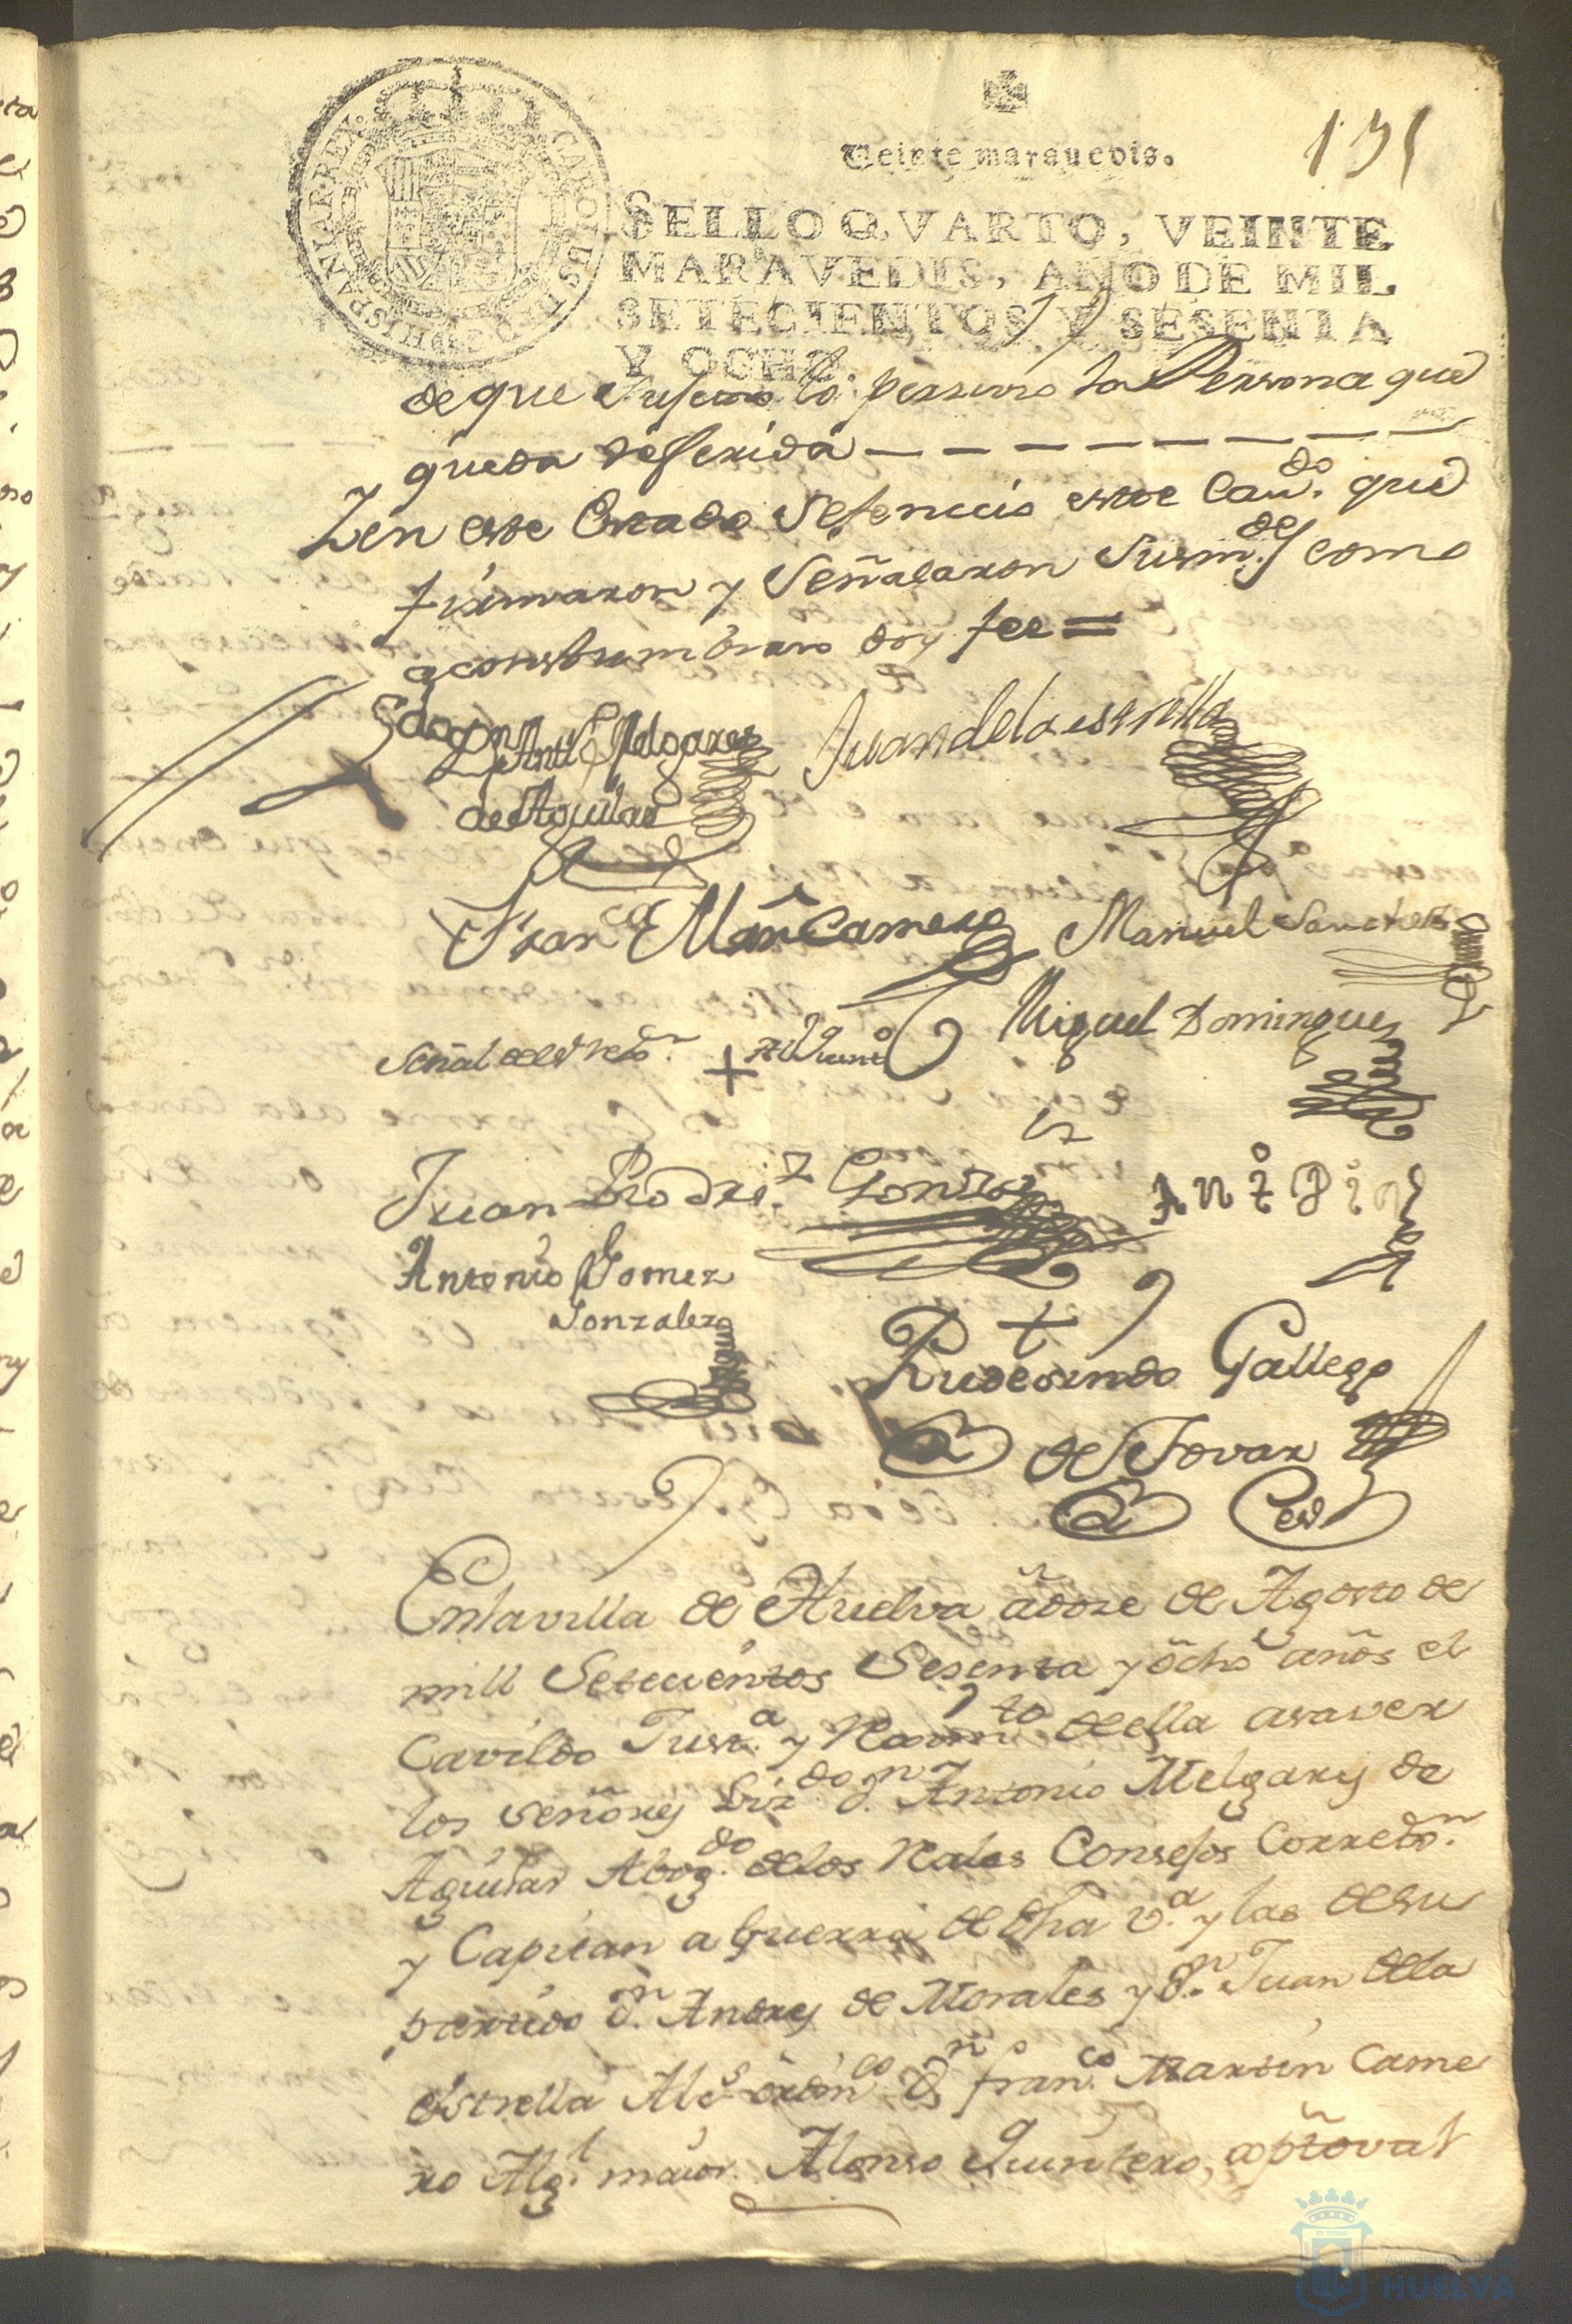 CAROLUS III D G HISPANIAR REX
Veinte marauedis.
131
SELLO QVARTO, VEINTE
MARAVEDIS, AÑO DE MIL
SETECIENTOS Y SESENTA
Y OCHO.
de que la Persona que
queda refferida
Y en este estado se fenecio este Cau.do que
firmaron y señalaron sus m.des como
acostumbran doy fee =
Antt.o Melgarez
de Aguilar
Juan de la estrella
Fran.co Marn Camero
Manuel Sanches
Miguel Domingues
Señal del Rexo.r + Al.o Quint.o
Juan Rodri.z Gonz.z
Ant.o Pin
Antonio Gomez
Gonzalez
Rudesindo Gallego
de Tovar
es.no
En la villa de Huelva a doze de Agosto de
mill Setecientos Sesenta y ocho años el
Cavildo Just.a y Reximi.to de ella a saver
los señores Liz.do D.n Antonio Melgarez de
Aguilar Abog.do de los Rales Consejos Corred.r
y Capitan a Guerra de dha v.a y las de su
partido d.n Andres de Morales y d.n Juan de la
estrella Alc.s ordin.os Dn fran.co Martin Came
ro Alg.l maior. Alonso Quintero,
ET TERRÆ
HUELVA